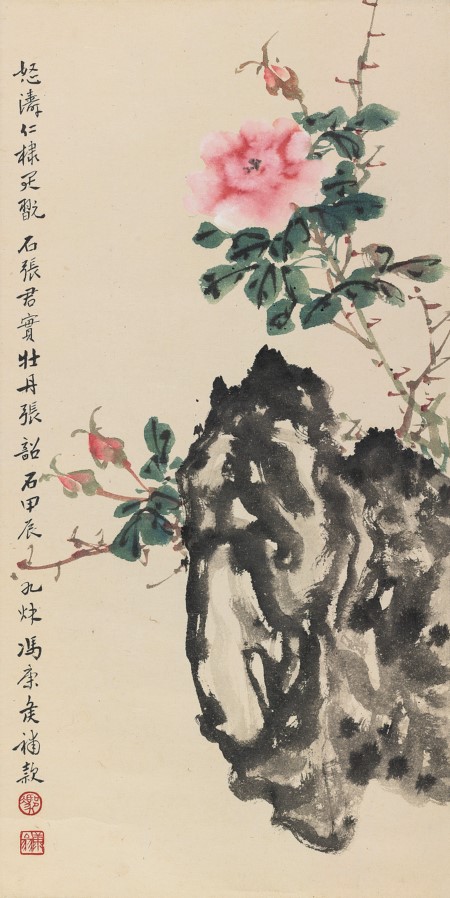 怒濤仁棣翫石張君實牡丹張韶石甲辰之九秋馮康侯補款